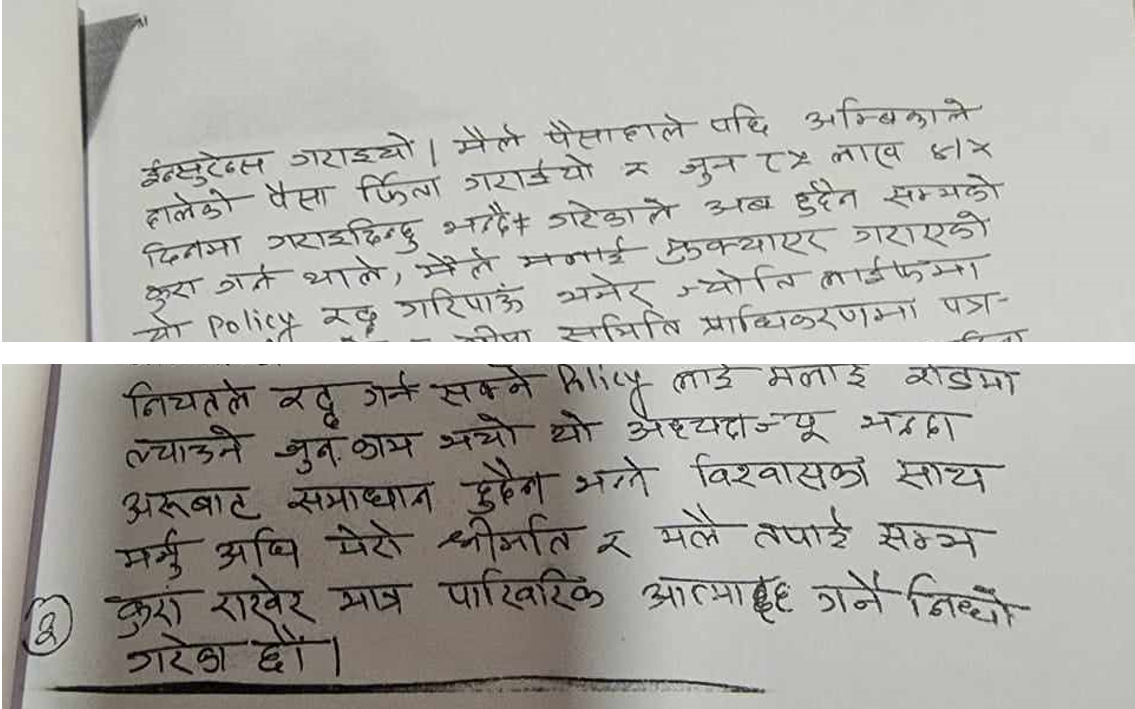 ईन्सुरेन्स गराइयो । मैले पैसाहाले पछि अम्बिकाले
हालेको पैसा फिर्ता गराईयो र जुन ८५ लाख ४।५
दिनमा गराइदिन्छु भन्दै गरेकाले अब हुदैन सम्मको
कुरा गर्न थाले, मैले मलाई झुक्याएर गराएको
यो Policy रद्द गरिपाऊँ भनेर ज्योति लाईफमा
समिति प्राधिकरणमा पत्र-
नियतले रद्द गर्न सक्ने Policy लाई मलाई रोडमा
ल्याउने जुन काम भयो यो अध्यक्षज्यू भन्दा
अरूबाट समाधान हुदैन भन्ने विश्वासका साथ
मर्नु अघि मेरो श्रीमति र मलै तपाई सम्म
कुरा राखेर मात्र पारिवरिक गर्ने निर्धो
२
गरेका छौं ।